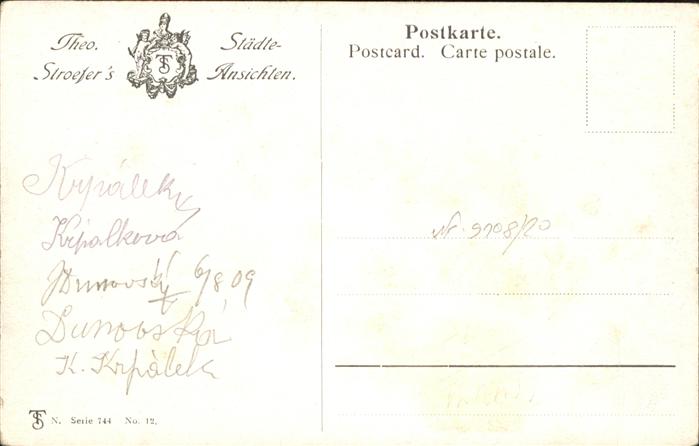 Theo. Stroefer's
Städte-Ansichten.
TS
Postkarte.
Postcard. Carte postale.
Krpálek
Krpálková
JDunovský 6/8 09
Dunovská
K. Krpálek
Nr. 9108/20
TS N. Serie 744 No. 12.